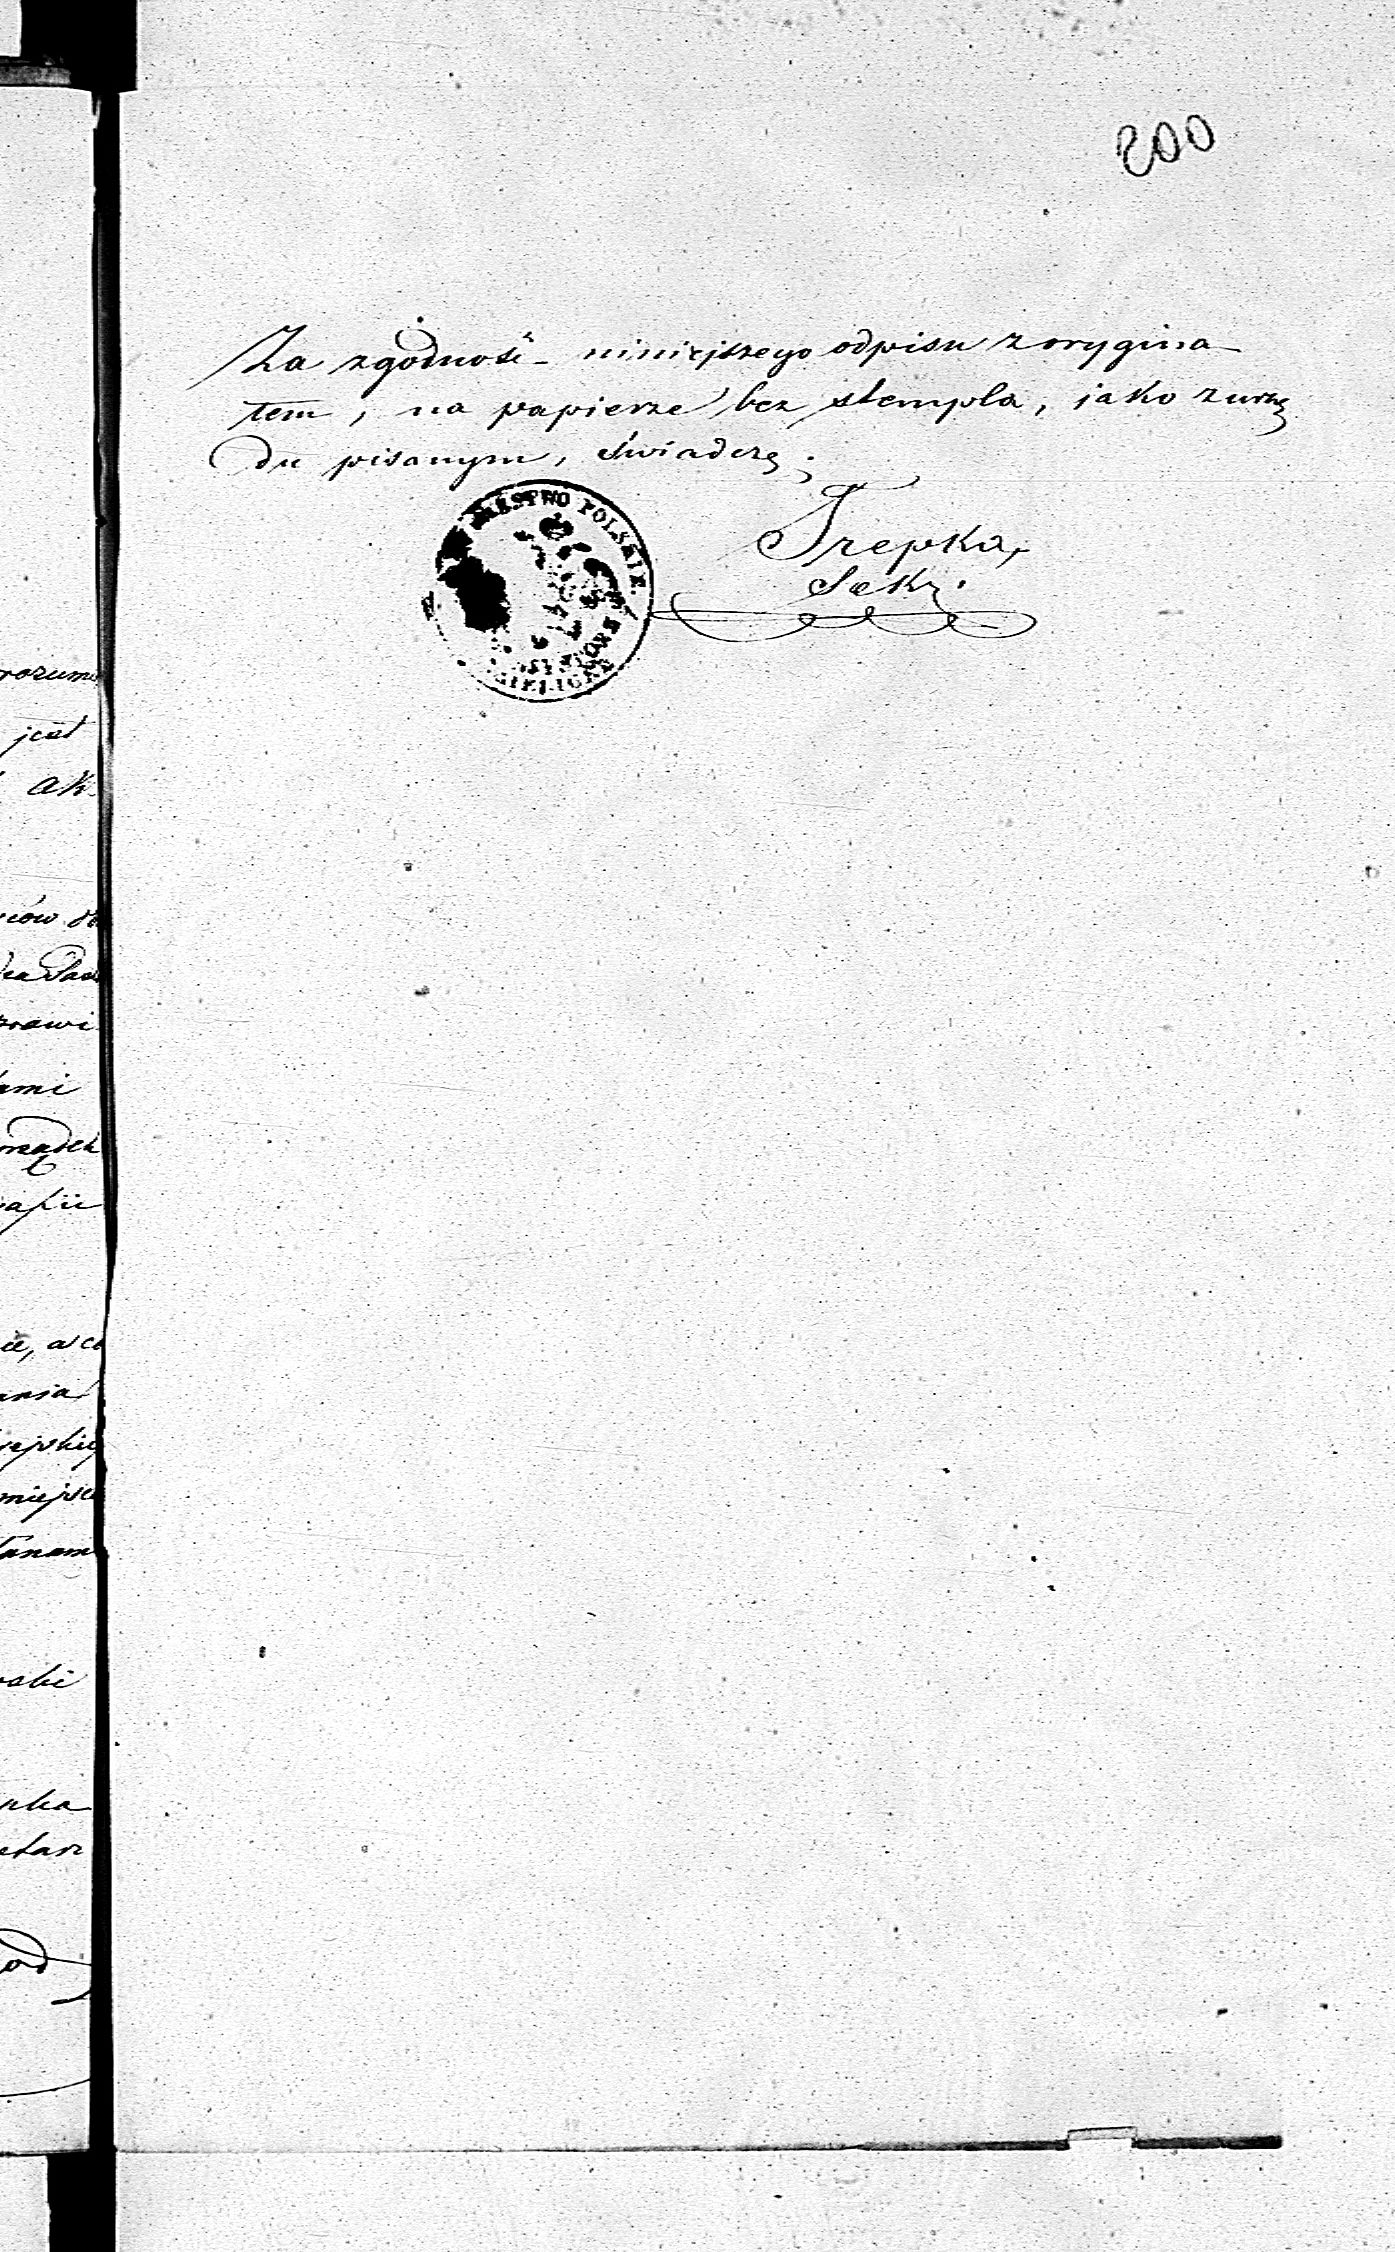 200
Za zgodność niniejszego odpisu z orygina-
łem, na papierze bez stempla, jako z urzę
du pisanym, świadczę.
Trepka,
Sekr.
POLSKIE
rozum
jest
ak.
ców
prawi
ami
afii
ie, a co
ania
miejsc
łanam
ski
pka
etarz